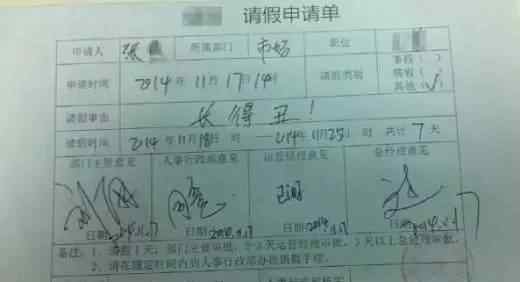 请假申请单
申请人 张 所属部门 市场 职位
申请时间 2014年11月17日 请假类别 事假( ) 病假( ) 其他(√)
请假事由 长得丑!
请假时间 2014年11月18日 时 —2014年11月25日 时 共计7天
部门主管意见 人事行政部意见 运营经理意见 总经理意见
日期2014.11.17 日期2014.11.17 日期2014.11.17 日期2014.11.17
备注:1、请假1天,部门主管审批,
2、请在规定时间内到人事行政部办理销假手续。